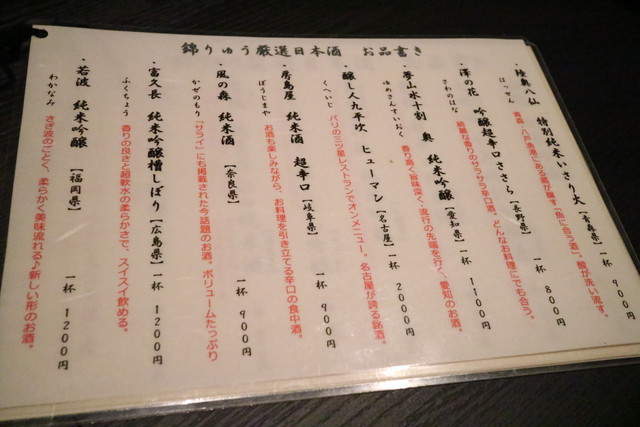 錦りゅう厳選日本酒　お品書き
・陸奥八仙　特別純米いさり火【青森県】一杯　900円
はっせん
青森・八戸漁港にある蔵が醸す「魚に合う酒」。酸が洗い流す。
・澤の花　吟醸超辛口ささら【長野県】一杯　800円
さわのはな
綺麗な香りのサラサラ辛口酒。どんなお料理にでも合う。
・夢山水十割　奥　純米吟醸【愛知県】一杯　1100円
ゆめさんすいおく
香り高く旨味深く、流行の先端を行く、愛知のお酒。
・醸し人九平次　ヒューマン【名古屋】一杯　2000円
くへいじ
パリの三ツ星レストランでオンメニュー。名古屋が誇る銘酒。
・房島屋　純米酒　超辛口【岐阜県】一杯　900円
ぼうじまや
お酒も楽しみながら、お料理を引き立てる辛口の食中酒。
・風の森　純米酒　【奈良県】　一杯　900円
かぜのもり
「サライ」にも掲載された今話題のお酒。ボリュームたっぷり
・富久長　純米吟醸槽しぼり【広島県】一杯　1200円
ふくちょう
香りの良さと超軟水の柔らかさで、スイスイ飲める。
・若波　純米吟醸　【福岡県】　一杯　1200円
わかなみ
さざ波のごとく、柔らかく美味流れる♪新しい形のお酒。